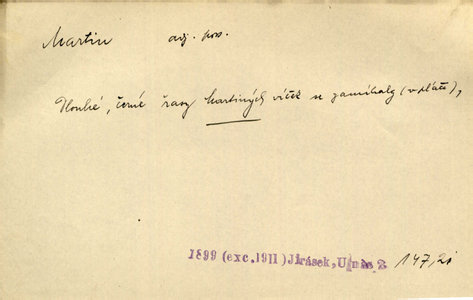 Martin adj. pos.
Dlouhé, černé řasy Martiných víček se zamíhaly (v pláči),
1899 (exc. 1911) Jirásek, U nás 2 147,21